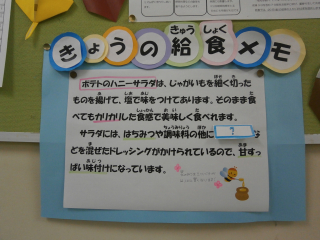 きょうの給食メモ
ポテトのハニーサラダは、じゃがいもを細く切った
ものを揚げて、塩で味をつけてあります。そのまま食
べてもカリカリした食感で美味しく食べれます。
サラダには、はちみつや調味料の他に ？ な
どを混ぜたドレッシングがかけられているので、甘ずっ
ぱい味付けになっています。